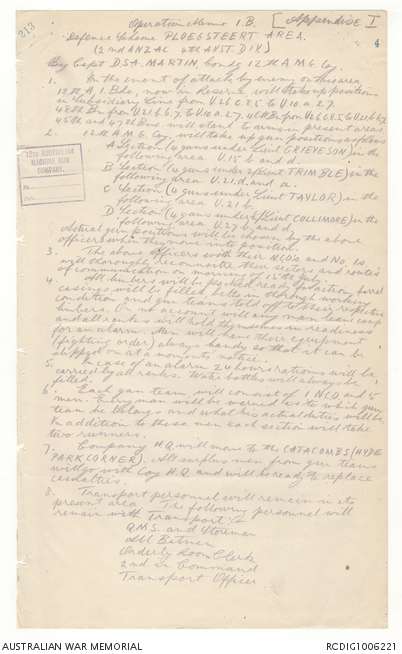 Operation Memo 1.B. [Appendix I
213
4
Defence Scheme PLOEGSTEERT AREA.
(2nd ANZAC 4th AUST DIV)
By Capt D.S.A. MARTIN, Comdg 12th A M G Coy.
1. In the event of attack by enemy on this area
12th A.I. Bde, now in Reserve will take up positions
in Subsidiary Line from
45th and 47th Bns will stand to arms in present areas
2. 12th A.M.G. Coy. will take up gun positions as follows
A Section (4 guns under Lieut GRIEVESON) in the
following area U.15 b and d.
B Section (4 guns under Lieut TRIMBLE) in the
following area U.21.d and a.
C Section (4 guns under Lieut TAYLOR) in the
following area U.21 b.
D Section (4 guns under Lieut COLLIMORE) in the
following area U.27 b and d.
Actual gun positions will be shown by the above
officers when they move into position
12TH AUSTRALIAN
MACHINE GUN
COMPANY.
No.
Date
3. The above officers with their N.C.O's and No. 1s
will thoroughly reconnoitre their sectors and routes
of communication on morning of
4. All limbers will be packed ready for action, barrel
casings will be filled, belts in thorough working
condition and gun teams told off to their respective
limbers. On no account will any man leave camp
and all ranks will hold themselves in readiness
for an alarm. Men will have their equipment
(fighting order) always handy so that it can be
slipped on at a moments notice.
5. In case of an alarm 24 hours rations will be
carried by all ranks. Water bottles will always be
filled.
6. Each gun team will consist of 1 NCO and 5
men. Every man will be warned as to which gun
team he belongs and what his actual duties will be.
In addition to these men each section will take
two runners.
7. Company H.Q. will move to the CATACOMBS (HYDE
PARK CORNER). All surplus men from gun teams
will go with Coy H.Q. and will be ready to replace
casualties.
8. Transport personnel will remain in its
present area. The following personnel will
remain with Transport:-
Q.M.S. and Storeman
All Batmen
Orderly Room Clerk
2nd in Command
Transport Officer
AUSTRALIAN WAR MEMORIAL
RCDIG1006221